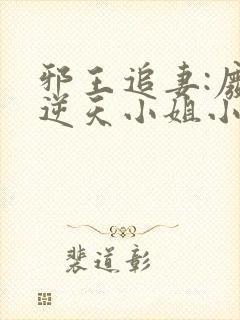 邪王追妻:废
逆天小姐小
裴道彰